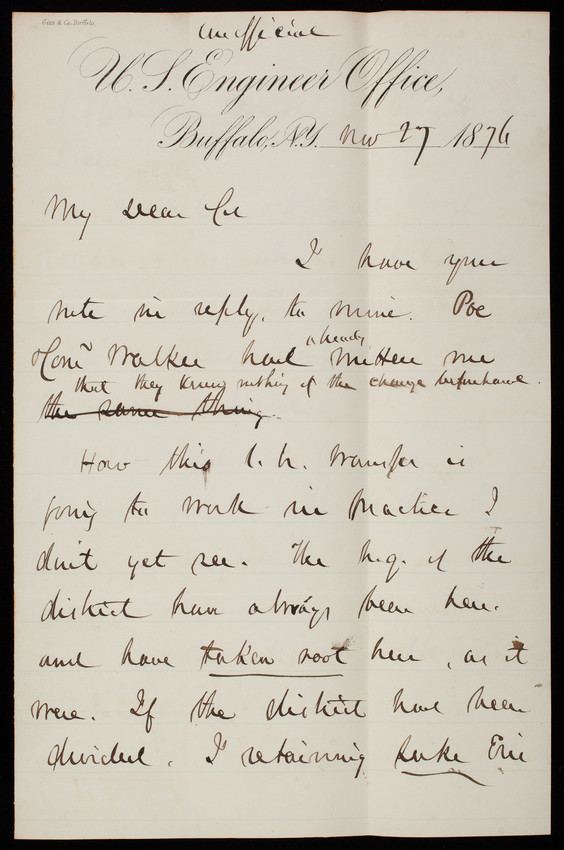 Gies & Co. Buffalo.
unofficial
U.S. Engineer Office,
Buffalo, N.Y. Nov 27 1876
My Dear Col
I have your
note in reply, to mine. Poe
& Com̅ Walker had already written me
that they knew nothing of the change beforehand.
the same thing.
How this l.h. transfer is
going to work in practice I
don't yet see. The h.q. of the
district have always been here.
and have taken root here, as it
were. If the district had been
divided, I retaining Lake Erie